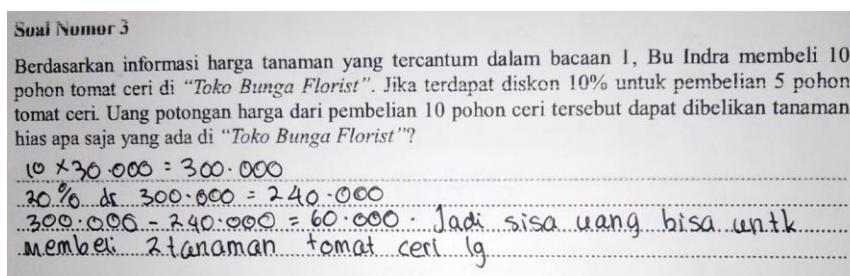 Soal Nomor 3
Berdasarkan informasi harga tanaman yang tercantum dalam bacaan 1, Bu Indra membeli 10
pohon tomat ceri di “Toko Bunga Florist”. Jika terdapat diskon 10% untuk pembelian 5 pohon
tomat ceri. Uang potongan harga dari pembelian 10 pohon ceri tersebut dapat dibelikan tanaman
hias apa saja yang ada di “Toko Bunga Florist”?
10 × 30.000 = 300.000
20% dr 300.000 = 240.000
300.000 - 240.000 = 60.000. Jadi sisa uang bisa untk
membeli 2 tanaman tomat ceri lg